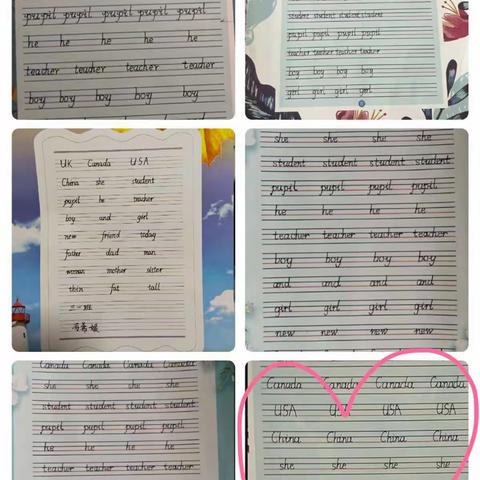 pupil pupil pupil pupil pupil
he he he he he
teacher teacher teacher teacher
boy boy boy boy boy
student student student student
pupil pupil pupil pupil
teacher teacher teacher teacher
boy boy boy boy
girl girl girl girl
UK Canada USA
China she student
pupil he teacher
boy and girl
new friend today
father dad man
woman mother sister
thin fat tall
三一班
she she she she
student student student student
pupil pupil pupil pupil
he he he he
teacher teacher teacher teacher
boy boy boy boy
and and and and
girl girl girl girl
new new new new
Canada Canada Canada Canada
she she she she
student student student student
pupil pupil pupil pupil
he he he he
teacher teacher teacher teacher
Canada Canada Canada Canada
USA USA USA USA
China China China China
she she she she